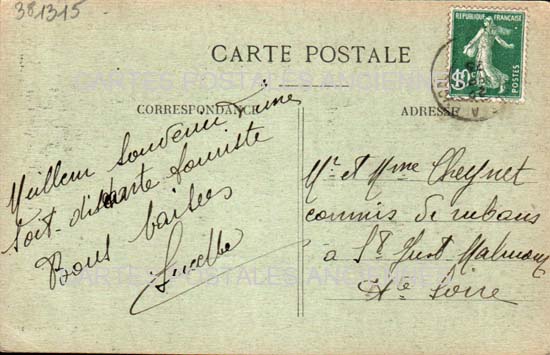 381315
CARTE POSTALE
REPUBLIQUE FRANÇAISE
10c
POSTES
CARTES POSTALES ANCIENNES
CORRESPONDANCE
ADRESSE
Meilleur Souvenir d'une
soit-disante touriste
Bons baisers
Mr et Mme Cheynet
commis de rubans
à St Just Malmont
Hte Loire
CARTES POSTALES ANCIENNES